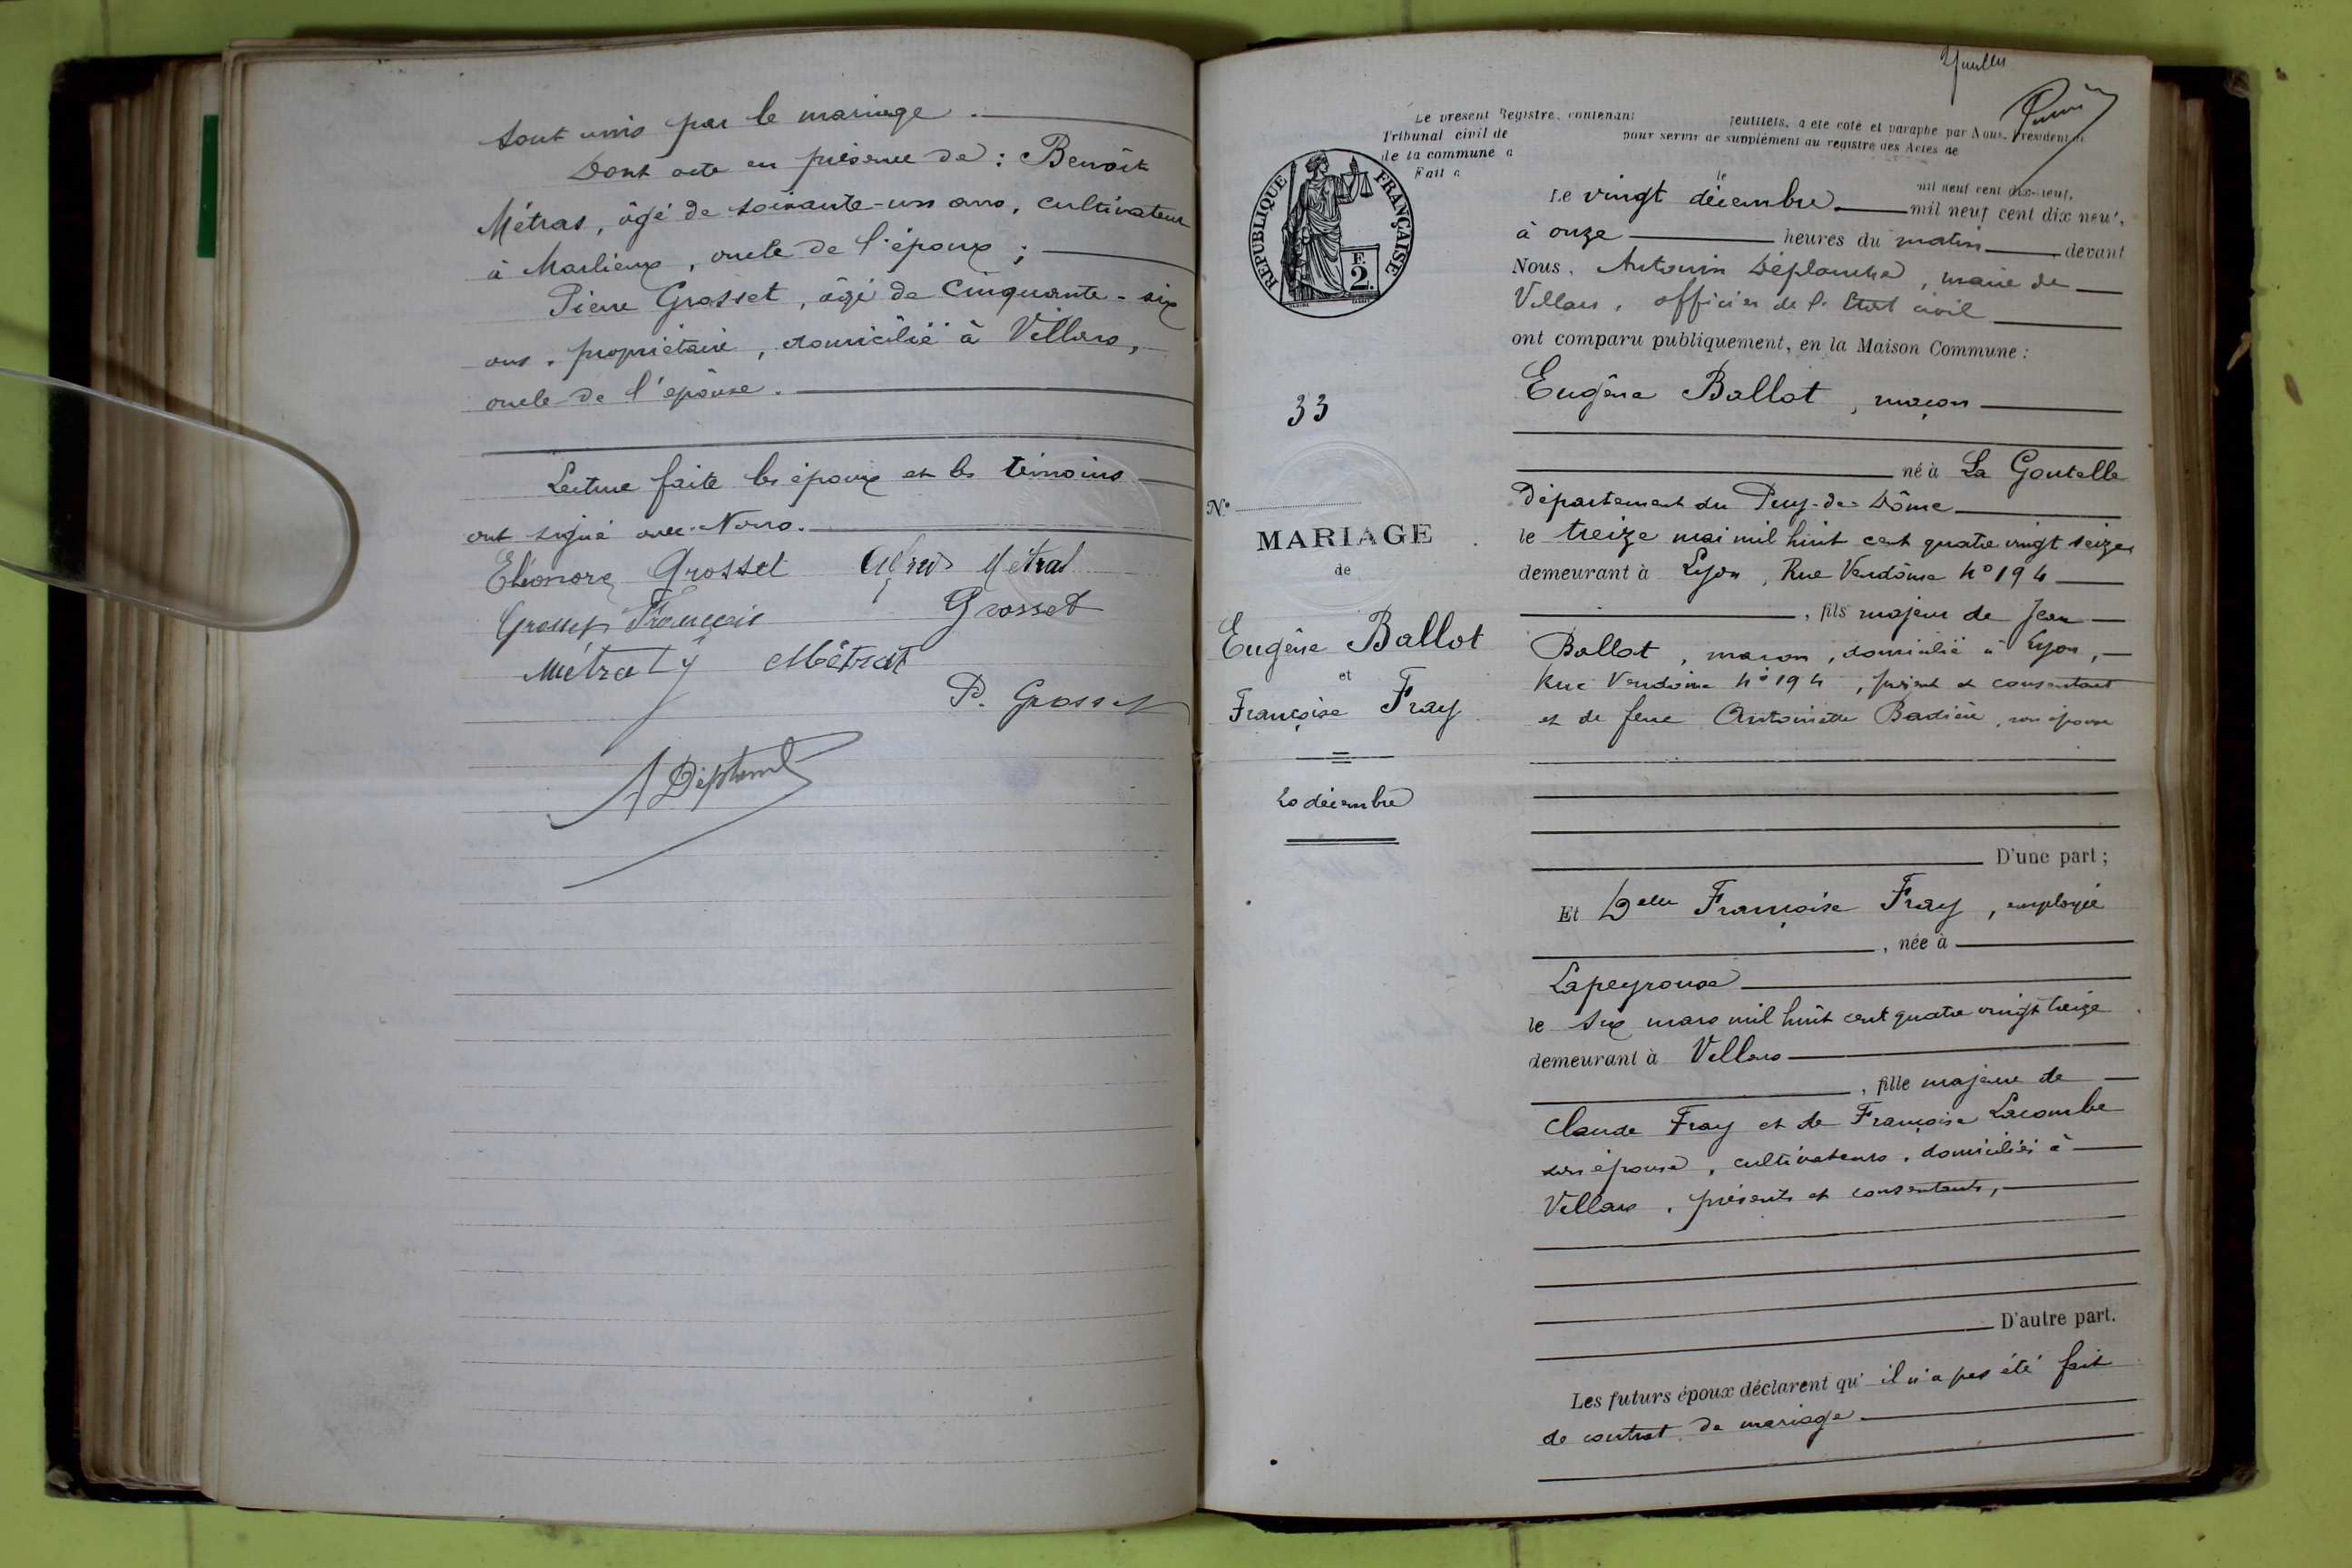 sont unis par le mariage.
Dont acte en présence de : Benoît
Métras, âgé de soixante-un ans, cultivateur
à Marlieux, oncle de l'époux ;
Pierre Grosset, âgé de cinquante-six
ans, propriétaire, domicilié à Villars,
oncle de l'épouse.
Lecture faite les époux et les témoins
ont signé avec Nous.
Eléonore Grosset Métras
François Grosset
Métrat
P. Grosset
A Déplanch
Le présent Registre, contenant feuillets, a été coté et paraphé par Nous, Président du
Tribunal civil de pour servir de supplément au registre des Actes de
de la commune d
Fait à le mil neuf cent dix-neuf,
RÉPUBLIQUE FRANÇAISE
F.
2.
Le vingt décembre mil neuf cent dix neuf,
à onze heures du matin devant
Nous, Antonin Déplanche, maire de
Villars, officier de l'Etat civil
ont comparu publiquement, en la Maison Commune :
Eugène Ballot, maçon
né à La Goutelle
Département du Puy-de-Dôme
le treize mai mil huit cent quatre vingt seize
demeurant à Lyon, Rue Vendôme no 194
, fils majeur de Jean
Ballot, maçon, domicilié à Lyon,
Rue Vendôme no 194, présent et consentant
et de feue Antoinette Badière, son épouse
33
No
MARIAGE
de
Eugène Ballot
et
Françoise Fray
20 décembre
D'une part ;
Et Delle Françoise Fray, employée
, née à
Lapeyrouse
le six mars mil huit cent quatre vingt treize
demeurant à Villars
, fille majeure de
Claude Fray et de Françoise Lacombe
son épouse, cultivateurs, domiciliés à
Villars, présents et consentants,
D'autre part.
Les futurs époux déclarent qu'il n'a pas été fait
de contrat de mariage.